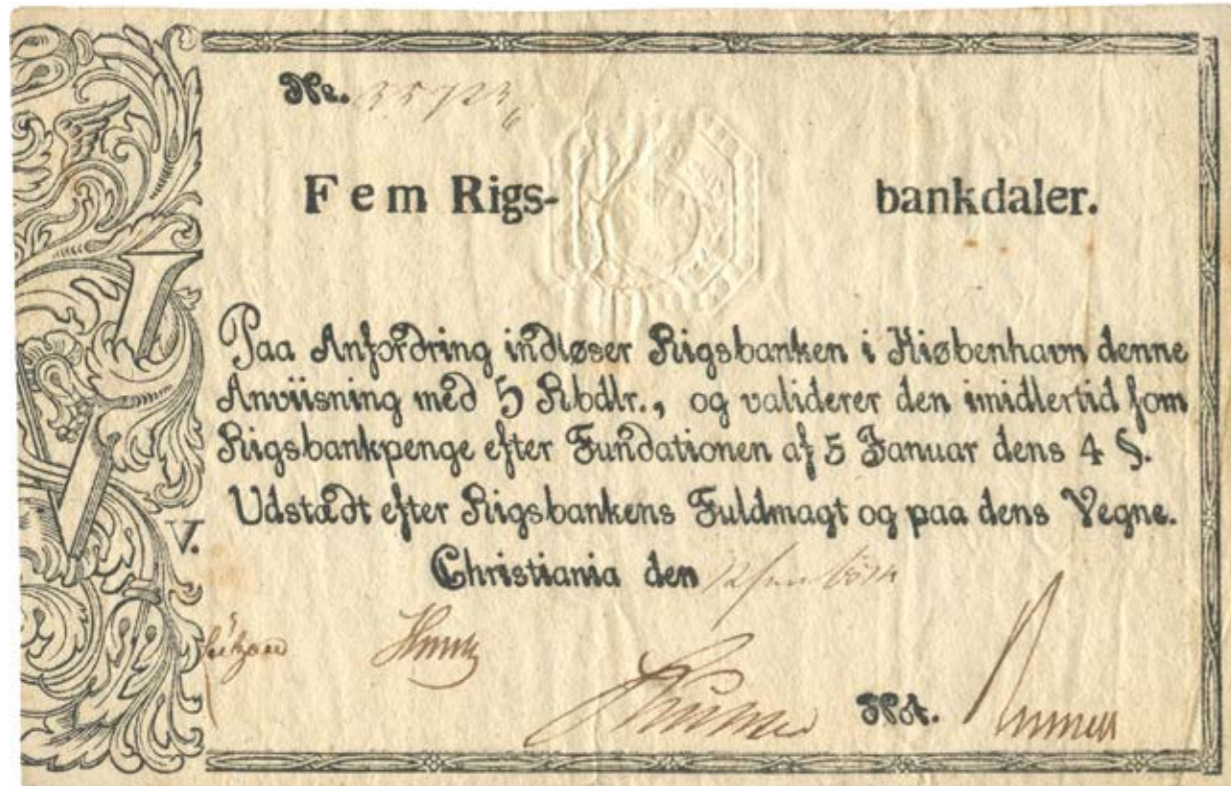 No. 35723
Fem Rigs- bankdaler.
Paa Anfordring indløser Rigsbanken i Kiøbenhavn denne
Anviisning med 5 Rbdlr., og validerer den imidlertid som
Rigsbankpenge efter Fundationen af 5 Januar dens 4 §.
Udstædt efter Rigsbankens Fuldmagt og paa dens Vegne.
V.
Christiania den
Not.